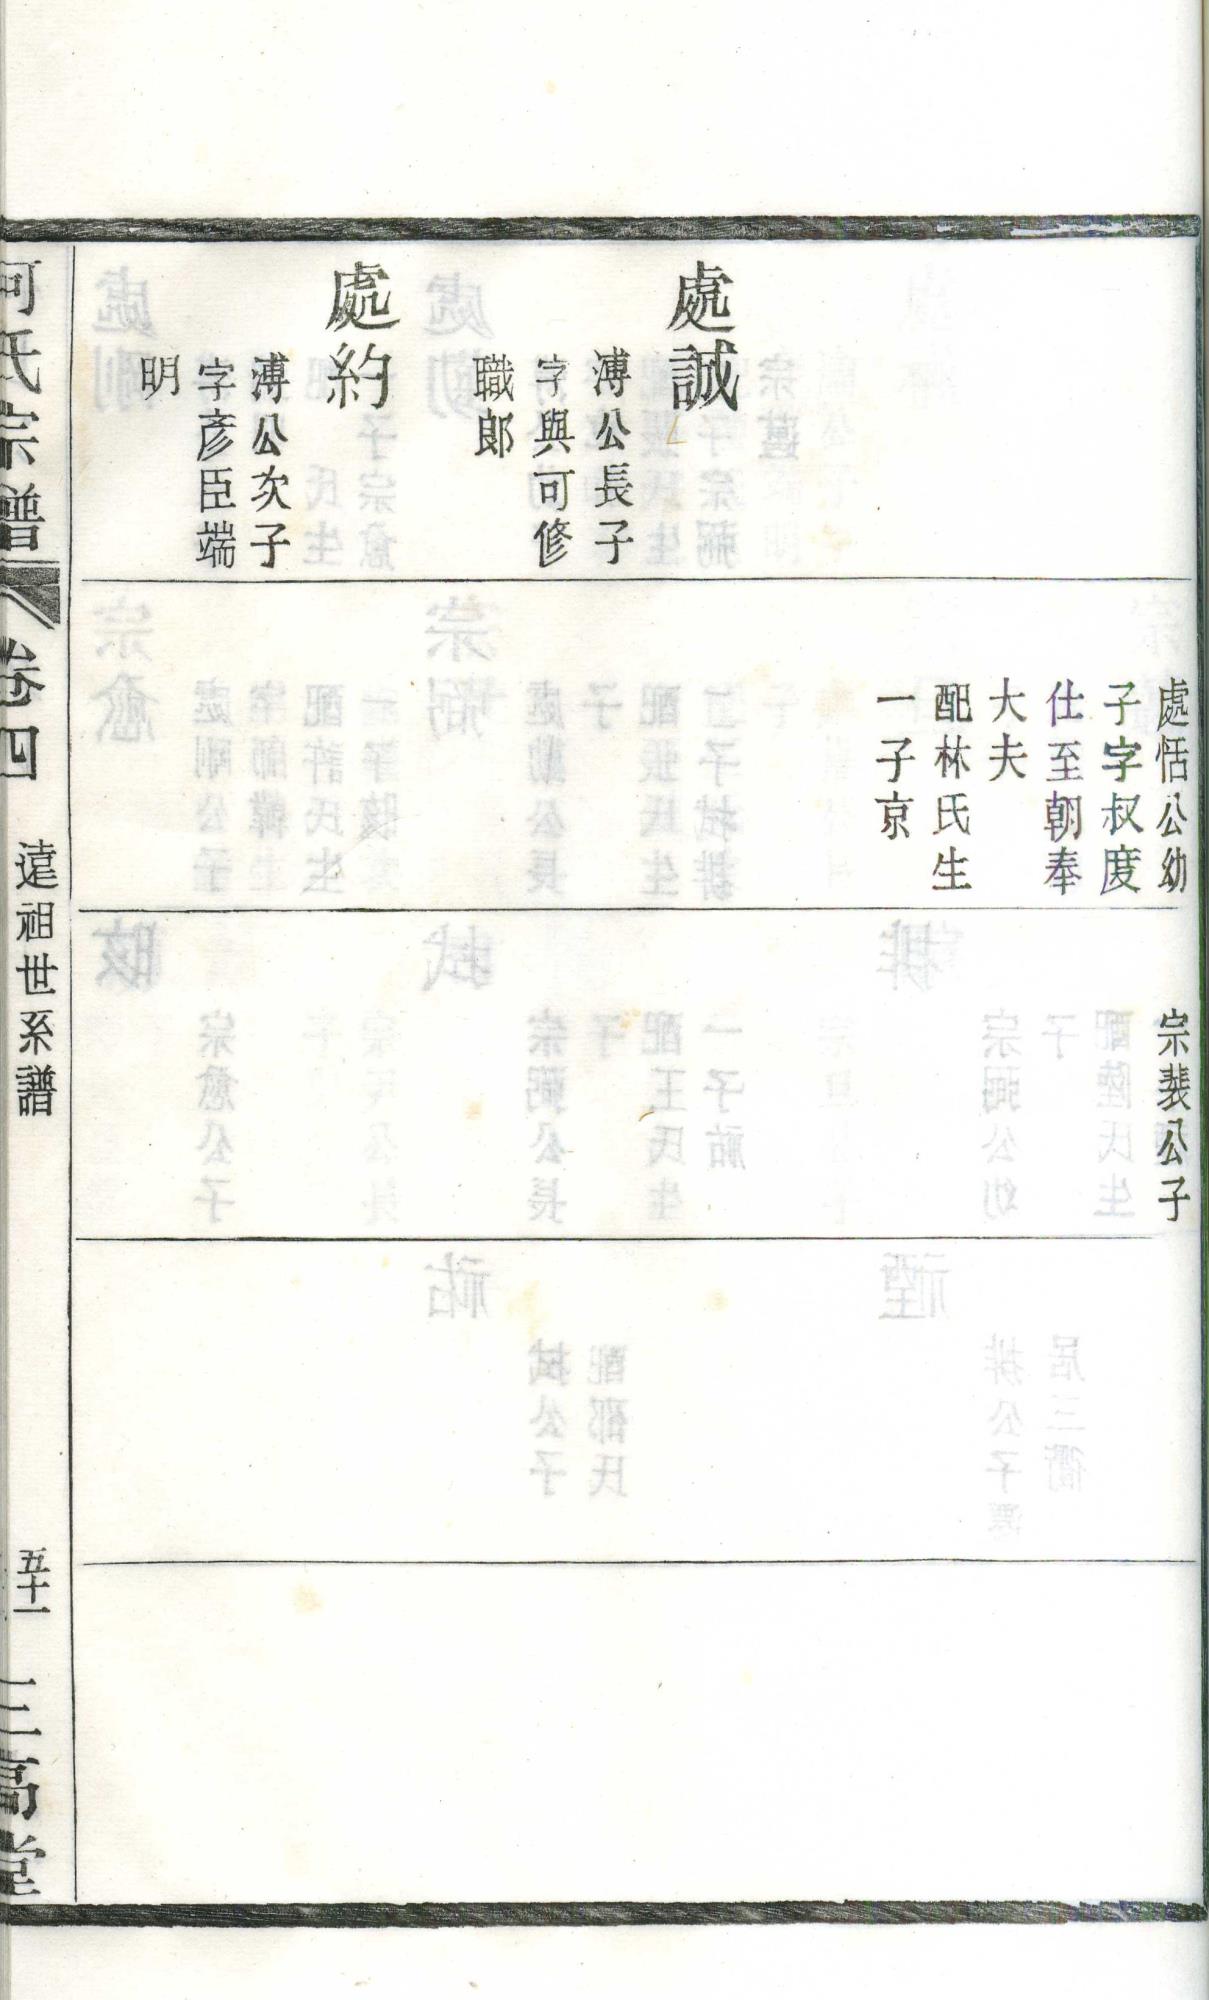 處誠
溥公長子
字與可修
職郎
處約
溥公次子
字彥臣端
明
處恬公幼
子字叔度
仕至朝奉
大夫
配林氏生
一子京
宗裴公子
何氏宗譜
卷四
遠祖世系譜
五十一
三高堂